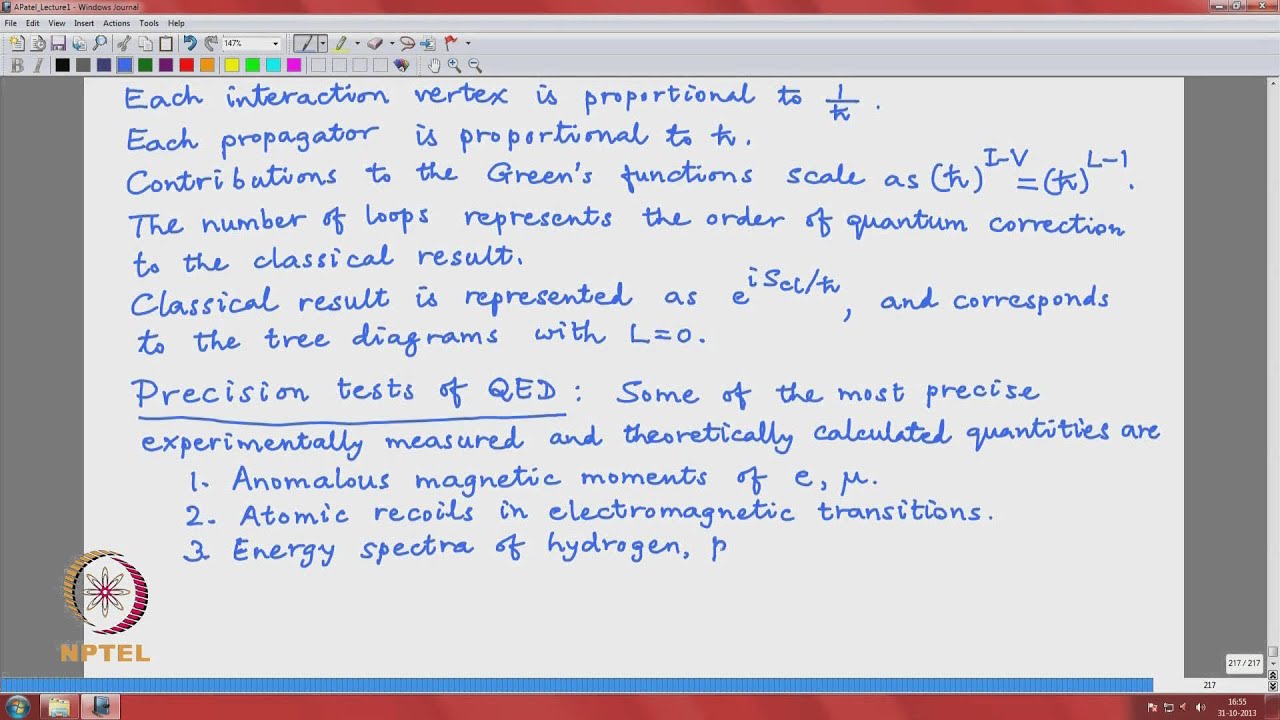 APatel_Lecture1 - Windows Journal
File Edit View Insert Actions Tools Help
147%
B I
Each interaction vertex is proportional to 1/ħ.
Each propagator is proportional to ħ.
Contributions to the Green's functions scale as (ħ)^{I-V} = (ħ)^{L-1}.
The number of loops represents the order of quantum correction
to the classical result.
Classical result is represented as e^{iScl/ħ}, and corresponds
to the tree diagrams with L=0.
Precision tests of QED: Some of the most precise
experimentally measured and theoretically calculated quantities are
1. Anomalous magnetic moments of e, μ.
2. Atomic recoils in electromagnetic transitions.
3. Energy spectra of hydrogen, p
NPTEL
217 / 217
217
16:55
31-10-2013